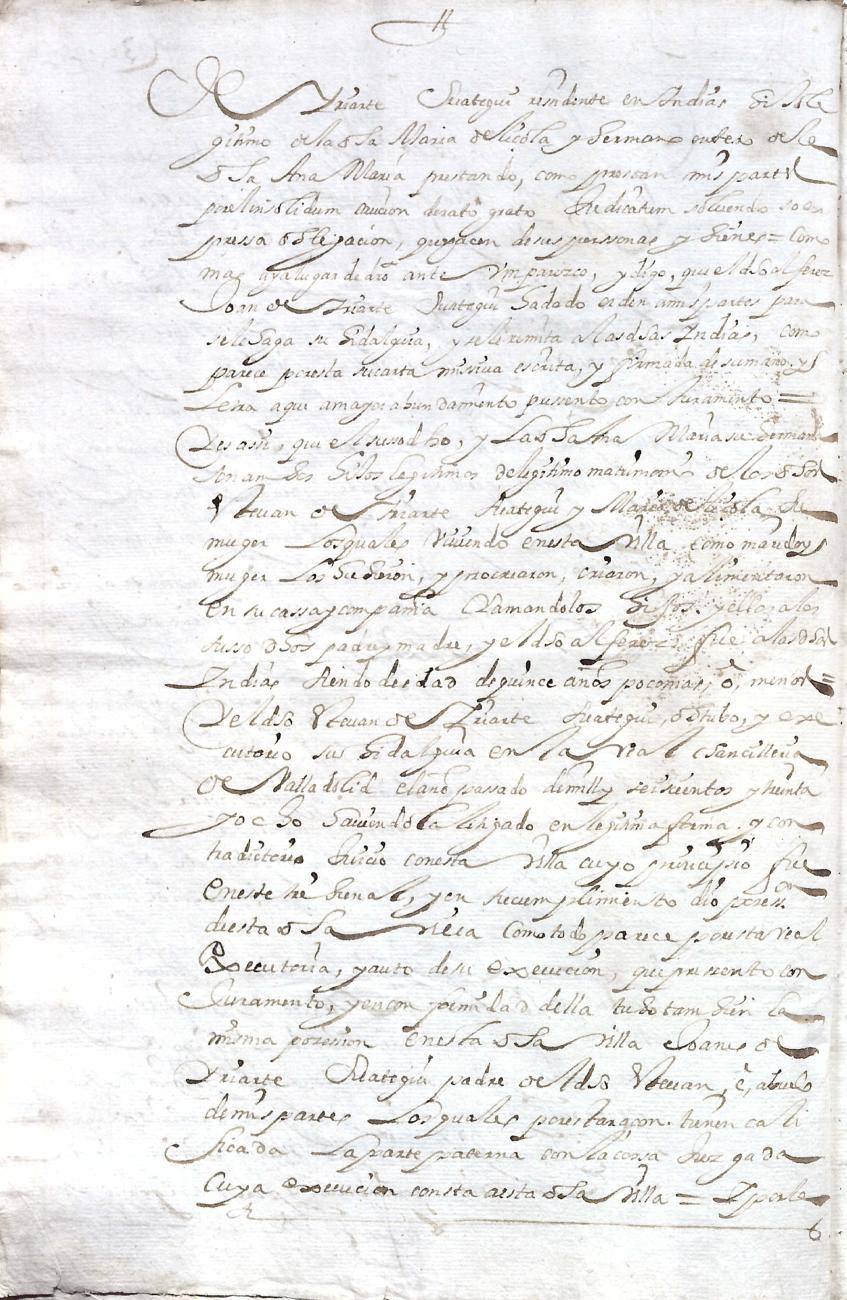 de Yriarte Suategui residente en Indias hijo le
gitimo de la dha Maria de Licola y hermano entero de la
dha Ana Maria prestando, como prestan mis partes
por el insolidum caucion de rato grato Judicatum solvendo so es
pressa obligacion, que hacen de sus perssonas y bienes = Como
mas aya lugar de dro ante Vm parezco, y digo, que el dho alferez
Joan de Yriarte Suategui ha dado orden a mis partes para
se le haga su hidalguia, y se le remita a las dhas Indias, como
parece por esta su carta missiva escrita, y firmada de su mano, y
Letra aqui a mayor abundamiento pressento con Juramento =
Y es assi, que el susodho, y La dha Ana Maria su hermana
son ambos hijos legitimos de legitimo matrimonio de los dhos
Stevan de Yriarte Suategui y Maria de Licola su
muger Los quales viviendo en esta Villa como marido y
muger Los hubieron, y procriaron, criaron, y alimentaron
en su cassa y compania Llamandolos hijos, y ellos a los
susso dhos padre y madre, y el dho alferez fue a las dhas
Indias siendo de edad de quince años poco mas, o, menos =
Y el dho Stevan de Yriarte Suategui, obtubo, y exe
cutorio su hidalguia en la real chancilleria
de Valladolid el año passado de mill y seiscientos y treinta
y ocho haviendola litigado en legitima forma, y con
tradictorio Juicio con esta Villa cuyo principio fue
en este tribunal, y en su cumplimiento dio poses.on
de esta dha Villa Como todo parece por esta real
Executoria, y auto de su execucion, que pressento con
Juramento, y en conformidad della tubo tambien la
misma posesion en esta dha Villa Joanes de
Yriarte Suategui padre del dho Stevan, e, abuelo
de mis partes Los quales por esta raçon tienen cali
ficada La parte paterna con la cossa Juzgada
Cuya execucion consta a esta dha Villa = Y por la